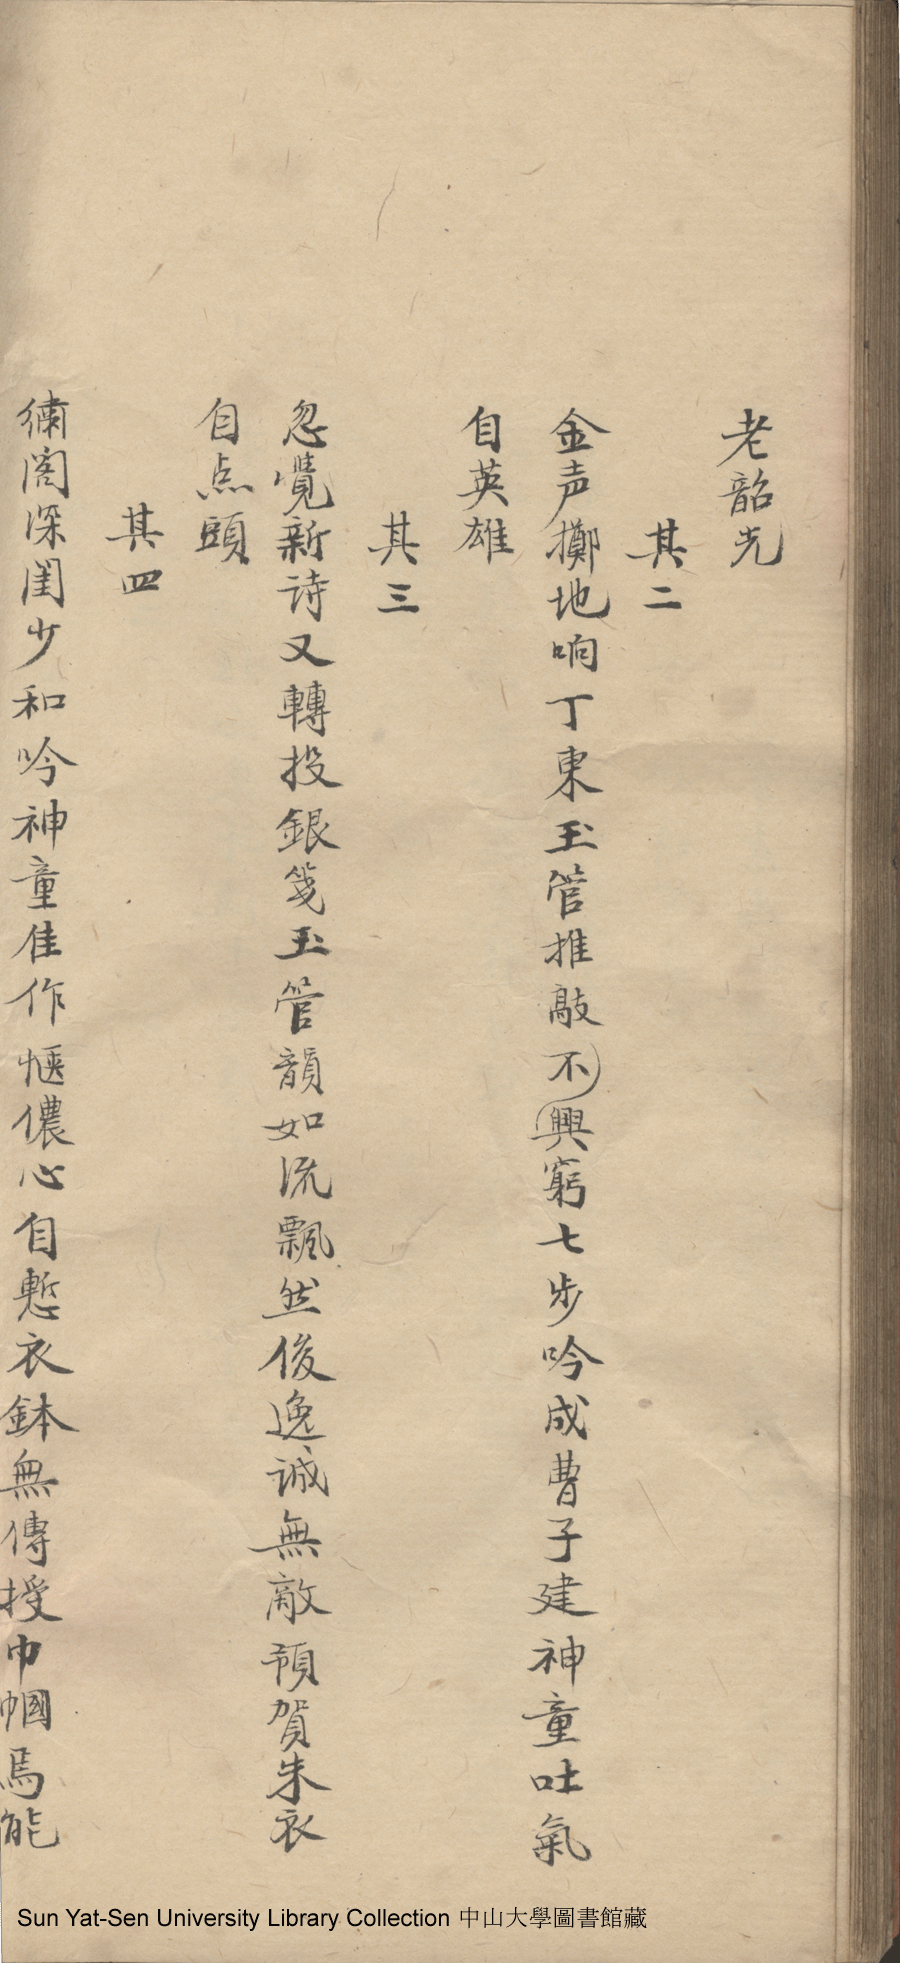 老韶光
其二
金声擲地响丁東玉管推敲不興窮七步吟成曹子建神童吐氣
自英雄
其三
忽覺新诗又轉投銀笺玉管韻如流飄然俊逸诚無敵預賀朱衣
自点頭
其四
繡阁深闺少和吟神童佳作惬儂心自慙衣鉢無傳授巾幗焉能
Sun Yat-Sen University Library Collection 中山大學圖書館藏